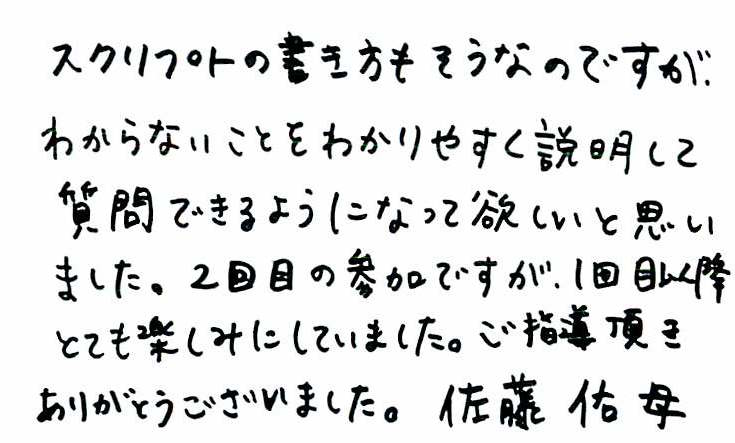 スクリプトの書き方もそうなのですが、
わからないことをわかりやすく説明して
質問できるようになって欲しいと思い
ました。2回目の参加ですが、1回目以降
とても楽しみにしていました。ご指導頂き
ありがとうございました。 佐藤 佑 母